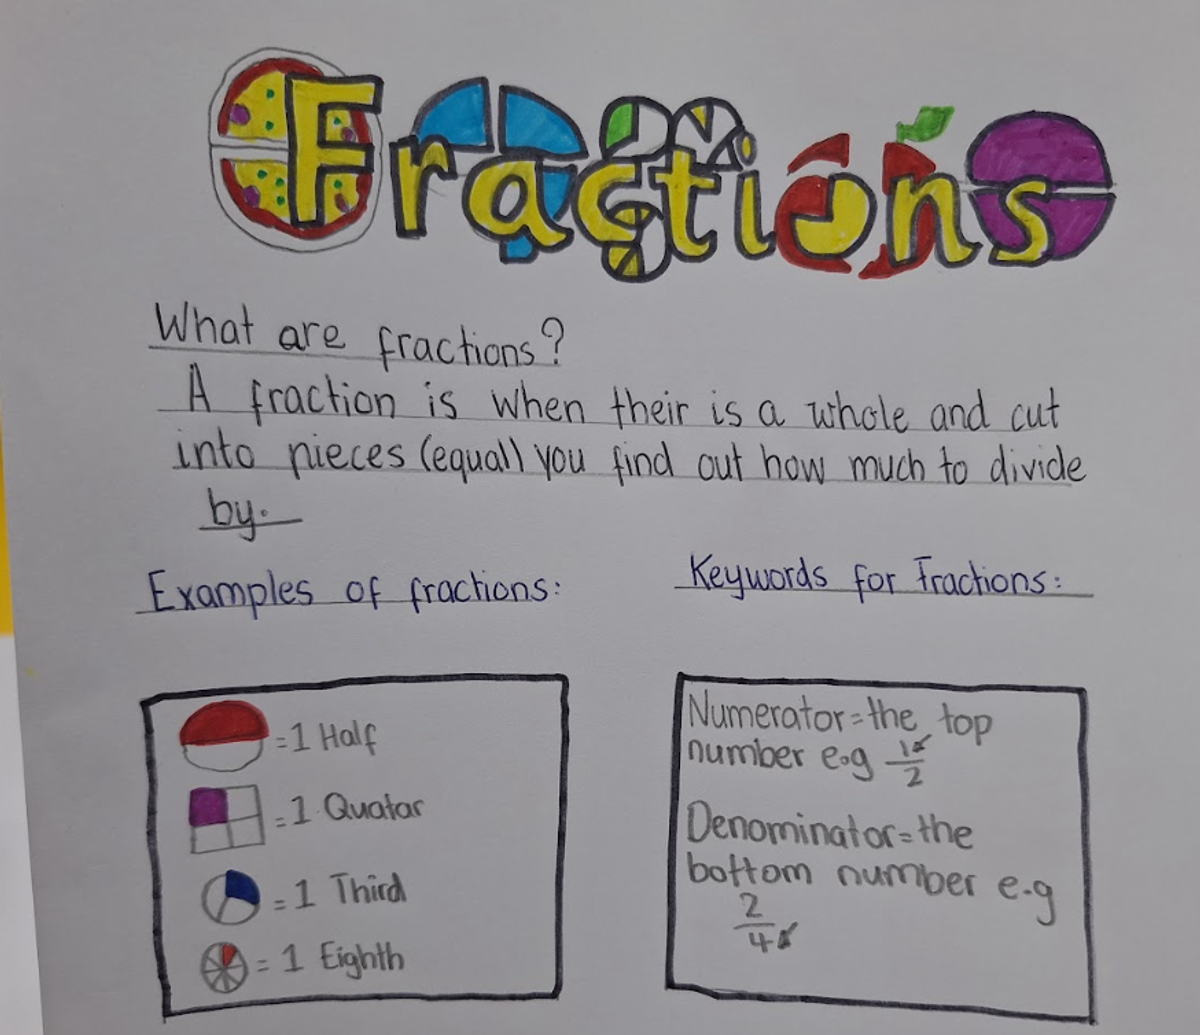 Fractions
What are fractions?
A fraction is when their is a whole and cut
into pieces (equal) you find out how much to divide
by.
Examples of fractions:
Keywords for Fractions:
=1 Half
=1 Quatar
=1 Third
=1 Eighth
Numerator=the top
number e.g 1/2
Denominator=the
bottom number e.g
2/4